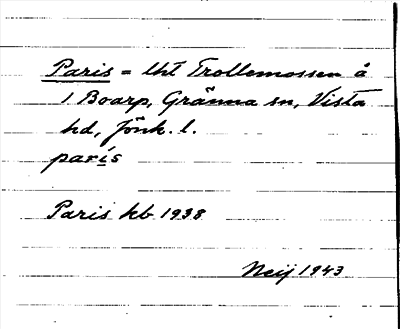 Paris = lht Trollemossen å
1 Boarp, Gränna sn, Vista
hd, Jönk. l.
parís
Paris kb 1938
Neij 1943